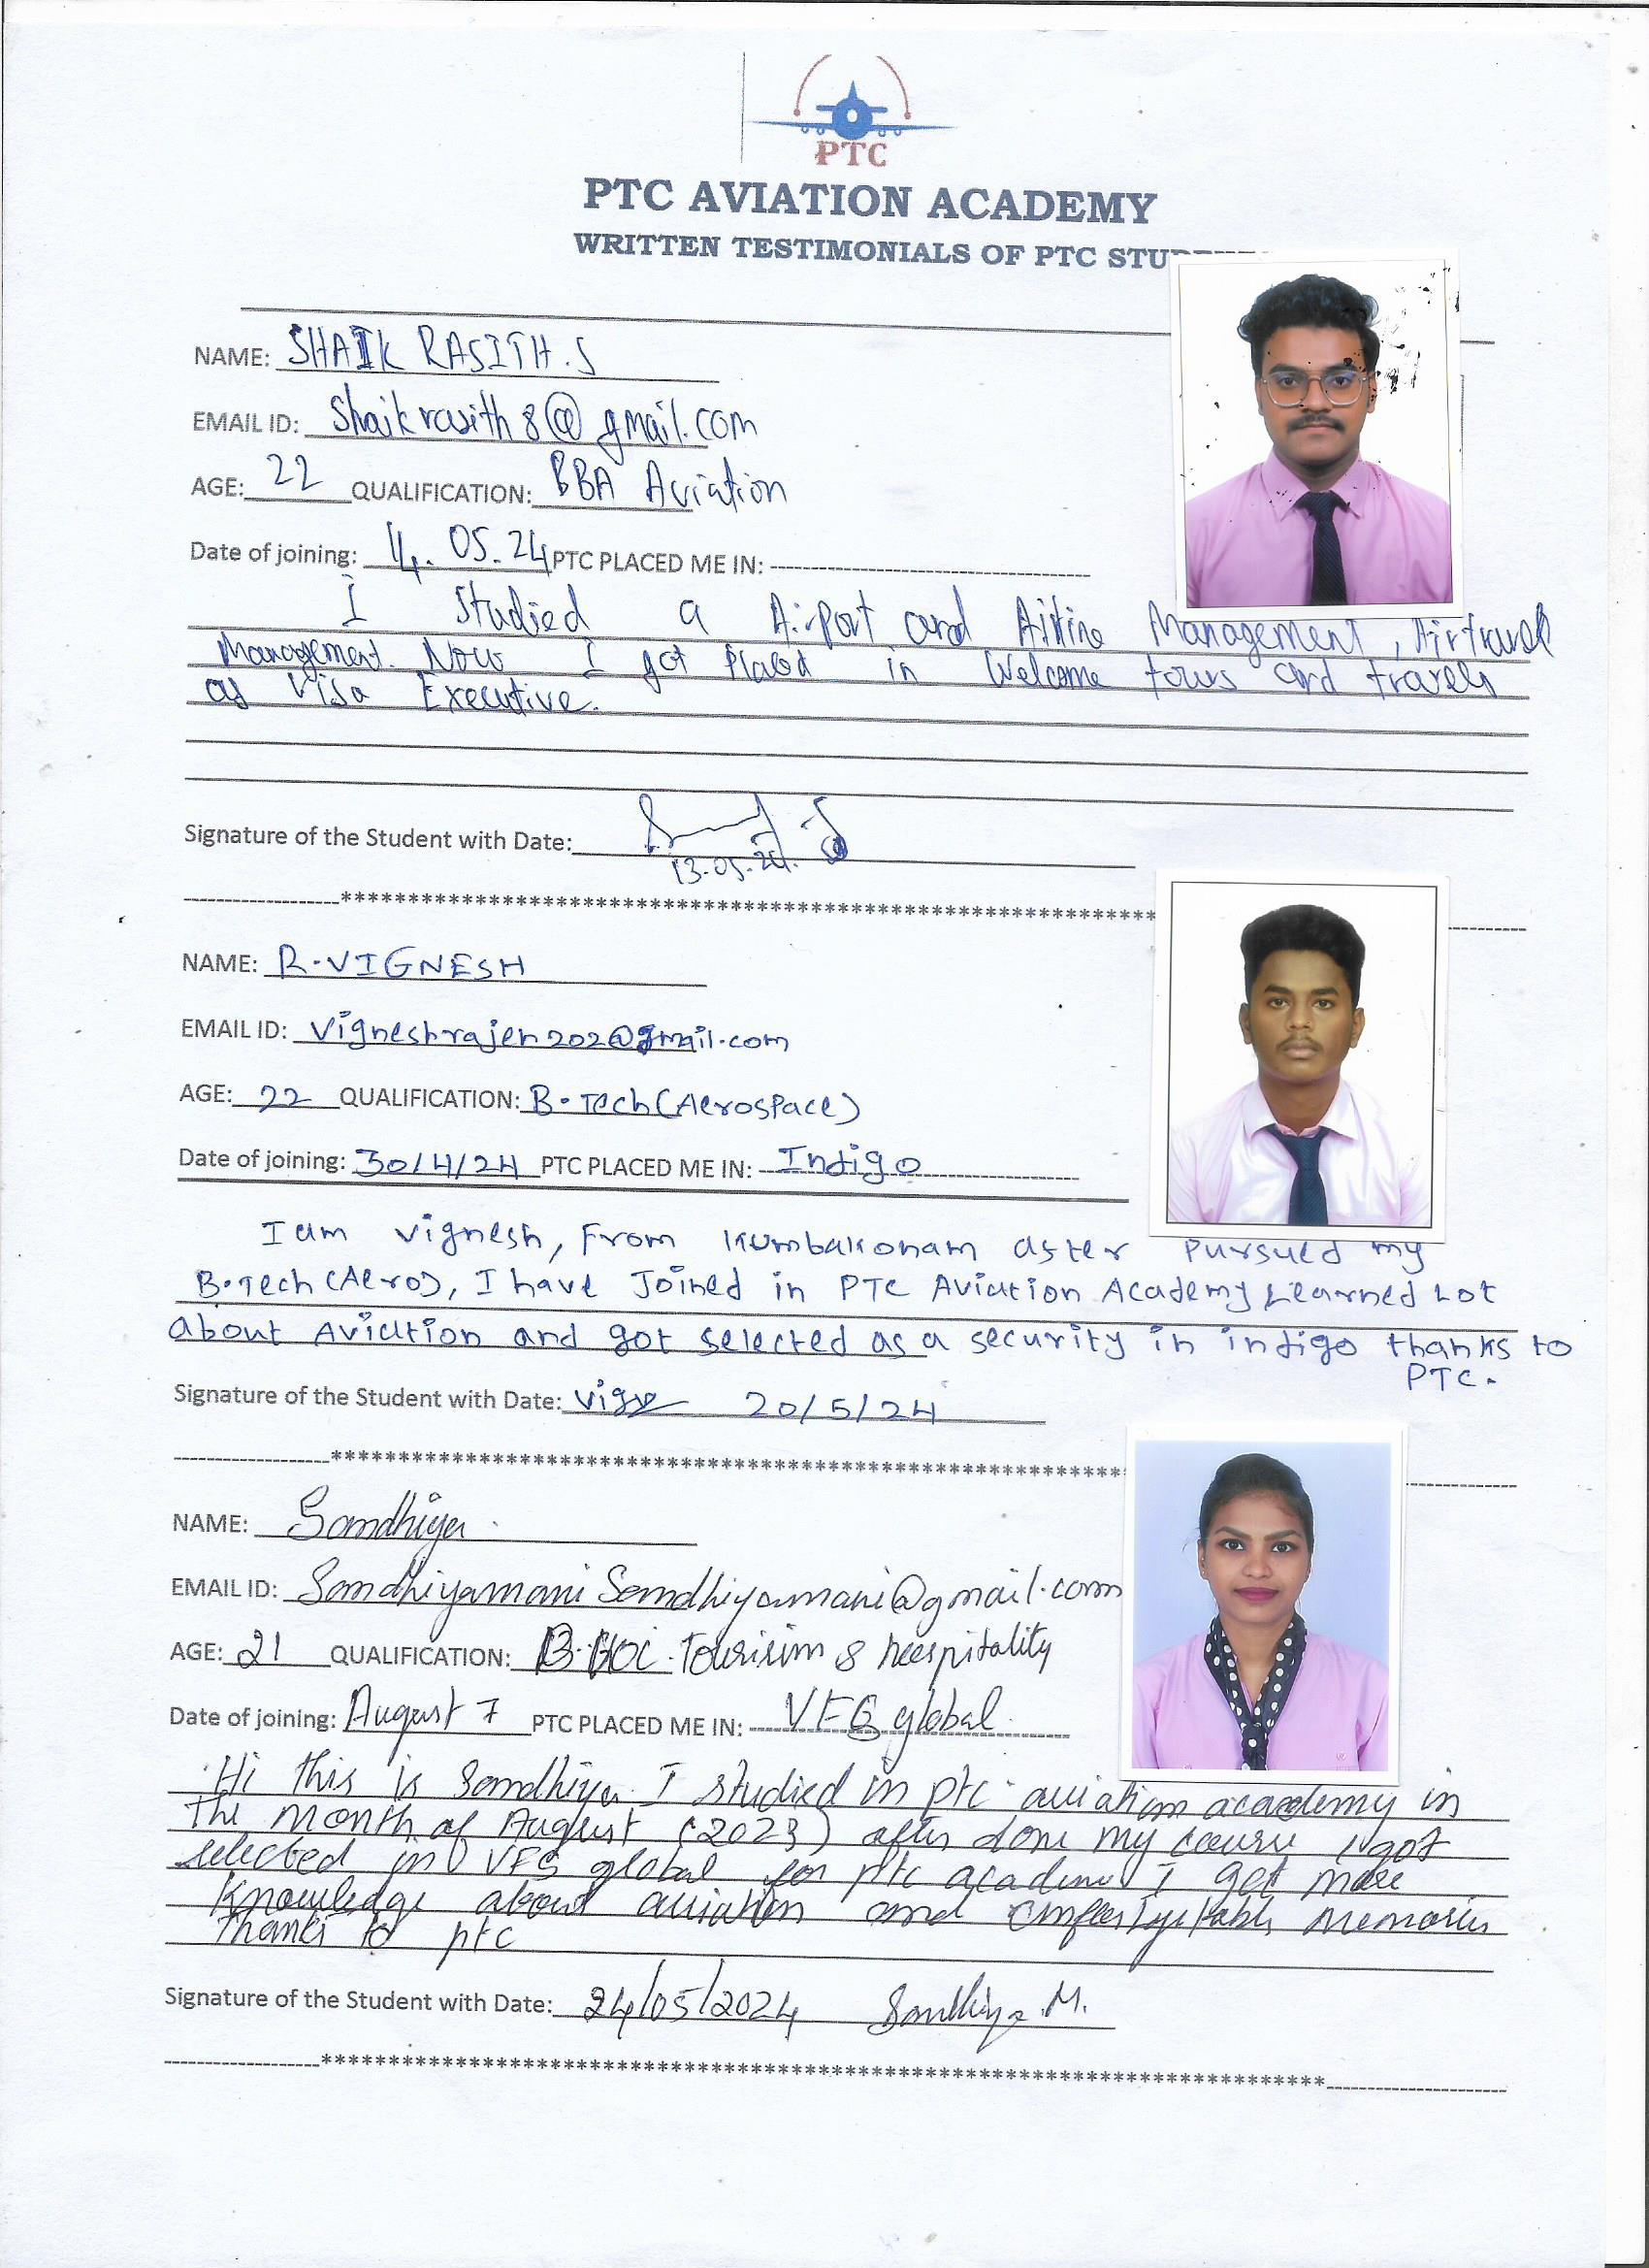 PTC
PTC AVIATION ACADEMY
WRITTEN TESTIMONIALS OF PTC
NAME: SHAIK RASITH.S
EMAIL ID: Shaikrasith8@gmail.com
AGE: 22 QUALIFICATION: BBA Aviation
Date of joining: 05.24 PTC PLACED ME IN:
I Studied a Airport and Airline Management, Airtravel
Management. Now I got Placed in Welcome tours and travels
as Visa Executive.
Signature of the Student with Date:
13.05.24.
NAME: R.VIGNESH
EMAIL ID: Vigneshrajen202@gmail.com
AGE: 22 QUALIFICATION: B.Tech (Aerospace)
Date of joining: 30/4/24 PTC PLACED ME IN: Indigo
I am Vignesh, From Kumbakonam after Pursued my
B.Tech (Aero), I have Joined in PTC Aviation Academy Learned Lot
about Aviation and got selected as a security in indigo thanks to
PTC.
Signature of the Student with Date: 20/5/24
NAME: Sandhiya
EMAIL ID: SandhiyamaniSandhiyamani@gmail.com
AGE: 21 QUALIFICATION: B.VOC Tourisim & hospitality
Date of joining: August 7 PTC PLACED ME IN: VFS global
Hi this is Sandhiya I studied in ptc aviation academy in
the month of August (2023) after done my course I got
selected in VFS global for ptc academy I get more
knowledge about aviation and memories
thanks to ptc
Signature of the Student with Date: 24/05/2024 Sandhiya.M.